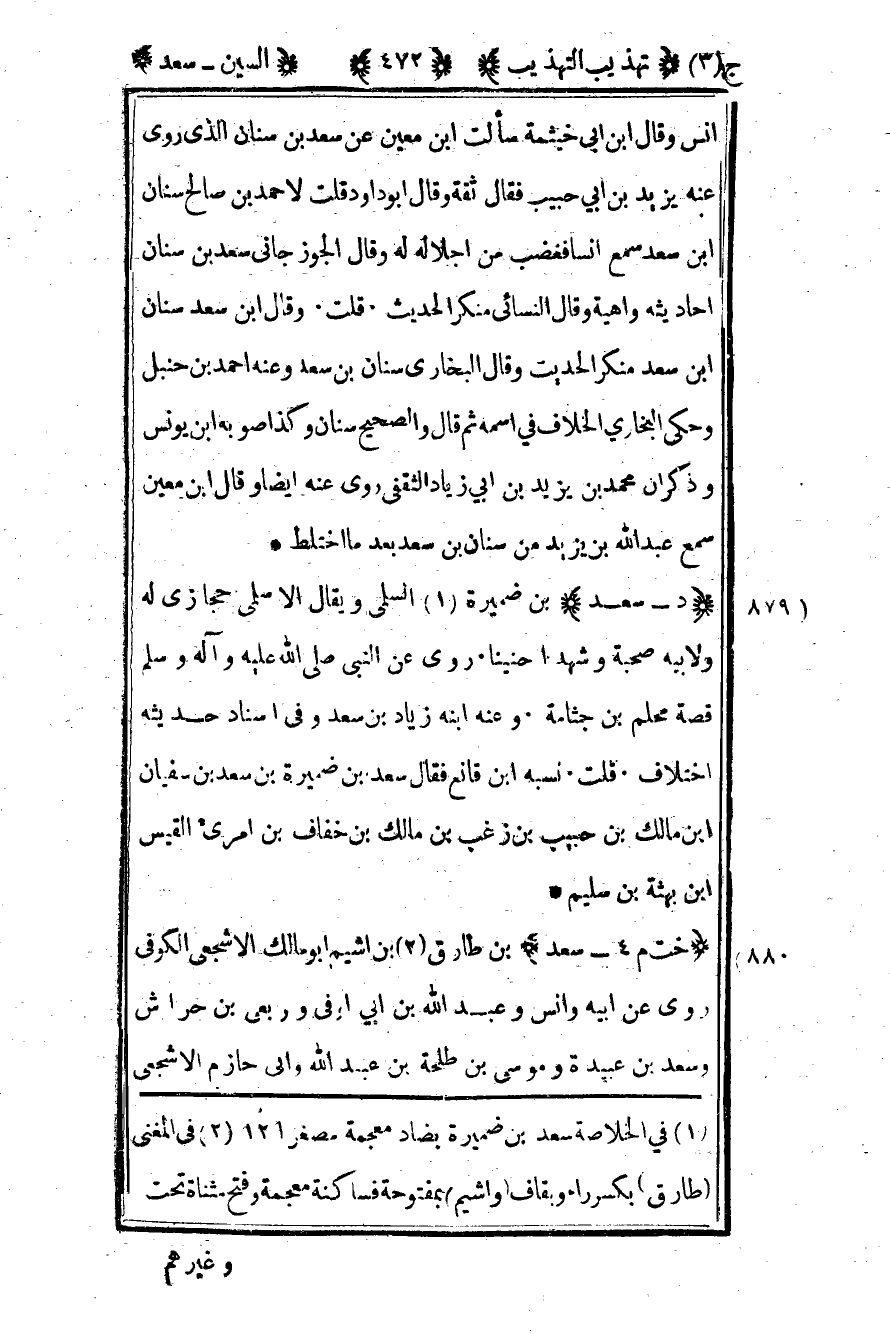 ج(٣) ﴿ تهذيب التهذيب ﴾ ﴿ ٤٧٢ ﴾ ﴿ السين ـ سعد ﴾
انس وقال ابن ابي خيثمة سألت ابن معين عن سعد بن سنان الذى روى
عنه يزيد بن ابي حبيب فقال ثقة وقال ابو داود قلت لاحمد بن صالح سنان
ابن سعد سمع انسا فغضب من اجلاله له وقال الجوزجانى سعد بن سنان
احاديثه واهية وقال النسائى منكر الحديث ٠ قلت ٠ وقال ابن سعد سنان
ابن سعد منكر الحديث وقال البخارى سنان بن سعد وعنه احمد بن حنبل
وحكى البخاري الخلاف في اسمه ثم قال والصحيح سنان وكذا صوبه ابن يونس
وذكر ان محمد بن يزيد بن ابي زياد الثقفى روى عنه ايضا وقال ابن معين
سمع عبد الله بن يزيد من سنان بن سعد بعد ما اختلط *
٨٧٩ ﴿ د ـ سعـد ﴾ بن ضميرة (١) السلمى ويقال الاسلمى حجازى له
ولابيه صحبة وشهدا حنينا ٠ روى عن النبى صلى الله عليه وآله وسلم
قصة محلم بن جثامة ٠ وعنه ابنه زياد بن سعد وفى اسناد حـديثه
اختلاف ٠ قلت ٠ نسبه ابن قانع فقال سعد بن ضميرة بن سعد بن سفيان
ابن مالك بن حبيب بن زغب بن مالك بن خفاف بن امرئ القيس
ابن بهثة بن سليم *
٨٨٠ ﴿ خت م ٤ ـ سعد ﴾ بن طارق (٢) بن اشيم ابو مالك الاشجعى الكوفى
روى عن ابيه وانس وعبـد الله بن ابي اوفى وربعى بن حراش
وسعد بن عبيدة وموسى بن طلحة بن عبـد الله وابى حازم الاشجعى
(١) في الخلاصة سعد بن ضميرة بضاد معجمة مصغرا ١٢ (٢) فى المغنى
(طارق) بكسر راء وبقاف (واشيم) بمفتوحة فساكنة معجمة وفتح مثناة تحت
وغيرهم